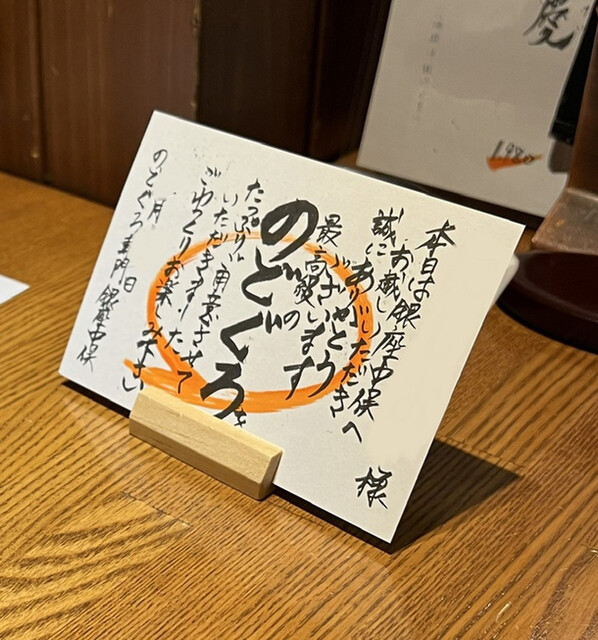 様
本日は銀座中俣へ
誠にお越しいただき
ありがとう
ございます
最高級の
のどぐろを
たっぷり用意させて
いただきました
ごゆっくりお楽しみ下さい
月 日
のどぐろ専門 銀座中俣
慶
1980